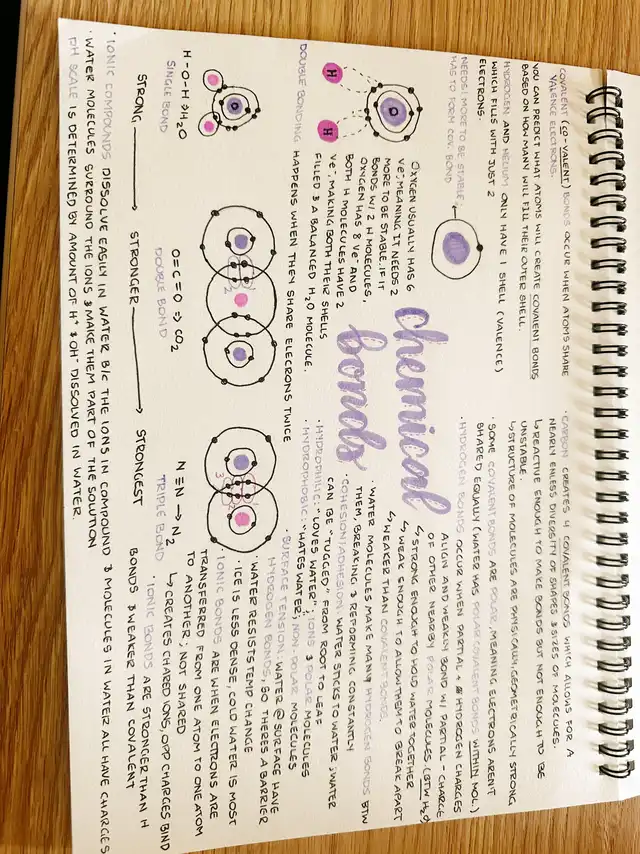 COVALENT (CO-VALENT) BONDS OCCUR WHEN ATOMS SHARE
VALENCE ELECTRONS.
YOU CAN PREDICT WHAT ATOMS WILL CREATE COVALENT BONDS
BASED ON HOW MANY WILL FILL THEIR OUTER SHELL.
HYDROGEN AND HELIUM ONLY HAVE 1 SHELL (VALENCE)
WHICH FILLS WITH JUST 2
ELECTRONS.
NEEDS 1 MORE TO BE STABLE,
HAS TO FORM COV. BOND
H
H
O
OXYGEN USUALLY HAS 6
Ve-, MEANING IT NEEDS 2
MORE TO BE STABLE. IF IT
BONDS W/ 2 H MOLECULES,
OXYGEN HAS 8 Ve- AND
BOTH H MOLECULES HAVE 2
Ve-, MAKING BOTH THEIR SHELLS
FILLED & A BALANCED H2O MOLECULE.
DOUBLE BONDING HAPPENS WHEN THEY SHARE ELECRONS TWICE
chemical
bonds
· CARBON CREATES 4 COVALENT BONDS WHICH ALLOWS FOR A
NEARLY ENLESS DIVERSITY OF SHAPES & SIZES OF MOLECULES.
↳ REACTIVE ENOUGH TO MAKE BONDS BUT NOT ENOUGH TO BE
UNSTABLE.
↳ STRUCTURE OF MOLECULES ARE PHYSICALLY, GEOMETRICALLY STRONG
· SOME COVALENT BONDS ARE POLAR, MEANING ELECTRONS ARENT
SHARED EQUALLY (WATER HAS POLAR COVALENT BONDS WITHIN MOL.)
· HYDROGEN BONDS OCCUR WHEN PARTIAL + HYDROGEN CHARGES
ALIGN AND WEAKLY BOND W/ PARTIAL - CHARGE
OF OTHER NEARBY POLAR MOLECULES. (BTW H2O)
↳ STRONG ENOUGH TO HOLD WATER TOGETHER
↳ WEAK ENOUGH TO ALLOW THEM TO BREAK APART
↳ WEAKER THAN COVALENT BONDS.
· WATER MOLECULES MAKE MANY HYDROGEN BONDS BTW
THEM, BREAKING & REFORMING CONSTANTLY
· COHESION/ADHESION: WATER STICKS TO WATER; WATER
CAN BE "TUGGED" FROM ROOT TO LEAF
· HYDROPHILIC: "LOVES WATER"; IONS & POLAR MOLECULES
· HYDROPHOBIC: "HATES WATER"; NON-POLAR MOLECULES
· SURFACE TENSION: WATER @ SURFACE HAVE
HYDROGEN BONDS, SO THERES A BARRIER
· WATER RESISTS TEMP CHANGE
· ICE IS LESS DENSE, COLD WATER IS MOST
· IONIC BONDS ARE WHEN ELECTRONS ARE
TRANSFERRED FROM ONE ATOM TO ONE ATOM
TO ANOTHER, NOT SHARED
↳ CREATES CHARED IONS, OPP CHARGES BIND
· IONIC BONDS ARE STRONGER THAN H
BONDS & WEAKER THAN COVALENT
O
H-O-H → H2O
SINGLE BOND
O=C=O ⇒ CO2
DOUBLE BOND
N≡N → N2
TRIPLE BOND
STRONG → STRONGER → STRONGEST
· IONIC COMPOUNDS DISSOLVE EASILY IN WATER B/C THE IONS IN COMPOUND & MOLECULES IN WATER ALL HAVE CHARGES
· WATER MOLECULES SURROUND THE IONS & MAKE THEM PART OF THE SOLUTION
· PH SCALE IS DETERMINED BY AMOUNT OF H+ & OH- DISSOLVED IN WATER